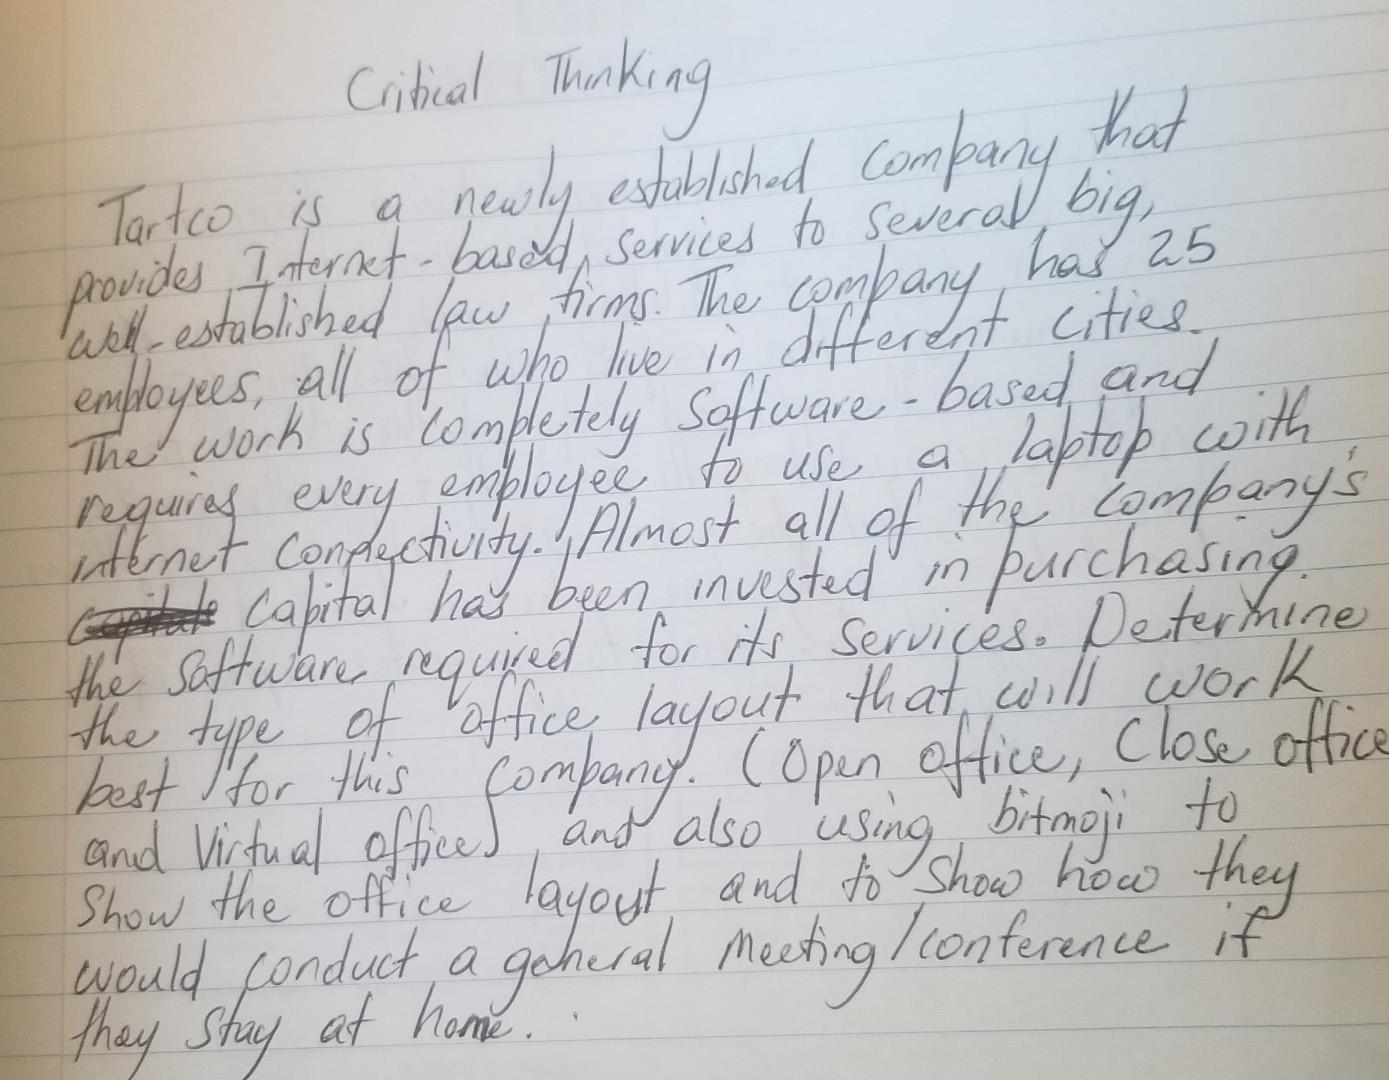 Critical Thinking
Tartco is a newly established company that
provides Internet-based services to several big,
well-established law firms. The company has 25
employees, all of who live in different cities.
The work is completely Software-based and
requires every employee to use a laptop with
internet connectivity. Almost all of the company's
capital has been invested in purchasing
the software required for its services. Determine
the type of office layout that will work
best for this company. (Open office, Close office
and Virtual office) and also using bitmoji to
Show the office layout and to show how they
would conduct a general meeting/conference if
they stay at home.